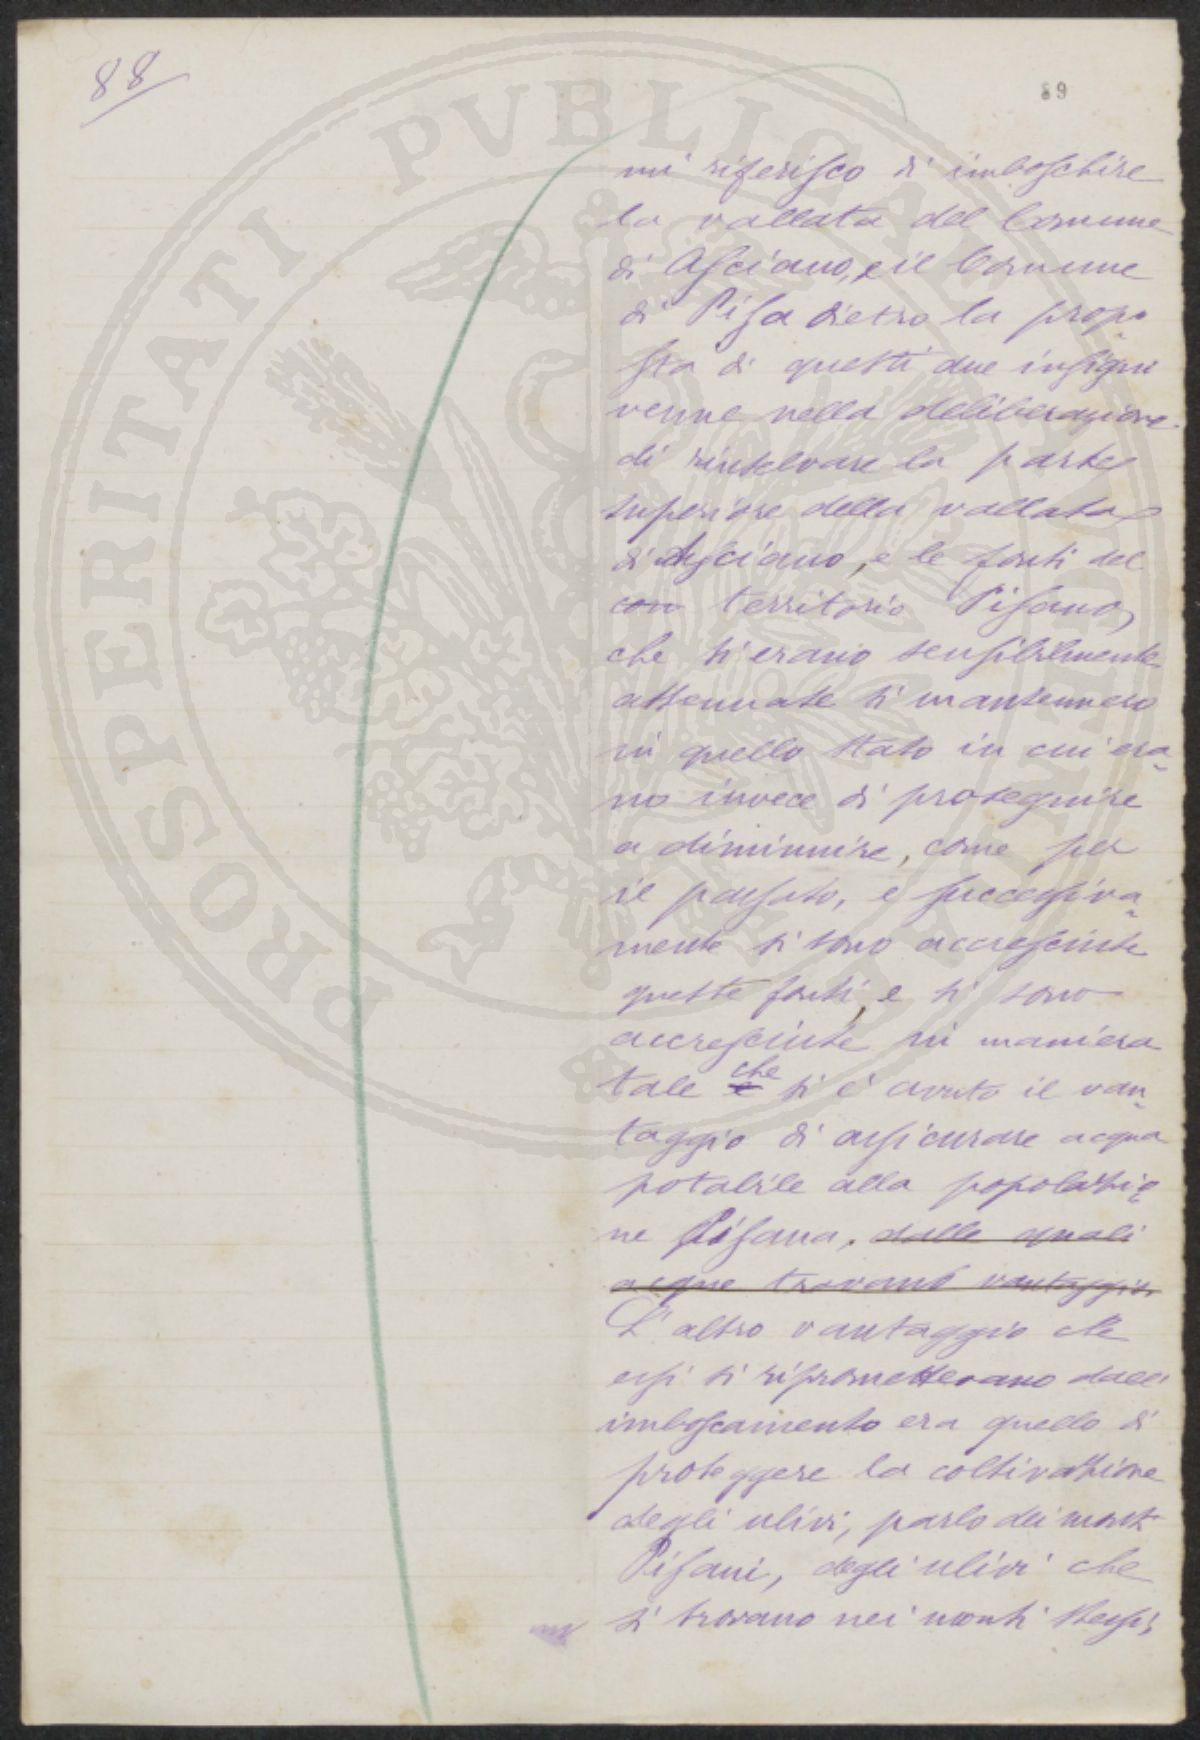 88
89
mi riferisco di imboschire
la vallata del Comune
di Asciano, e il Comune
di Pisa dietro la propo
sta di questi due insigni
venne nella deliberazione
di rinselvare la parte
superiore della vallata
di Asciano, e le fonti del
con territorio Pisano,
che si erano sensibilmente
attenuate si mantennero
in quello stato in cui era-
no invece di proseguire
a diminuire, come per
il passato, e successiva-
mente si sono accresciute
queste fonti, e si sono
accresciute in maniera
tale e che si è avuto il van-
taggio di assicurare acqua
potabile alla popolazio
ne Pisana. dalle quali
acque trovano vantaggio.
L'altro vantaggio che
essi si ripromettevano dall'
imboscamento era quello di
proteggere la coltivazione
degli ulivi, parlo dei monti
Pisani, degli ulivi che
si trovano nei monti stessi,
PROSPERITATI PVBLICAE